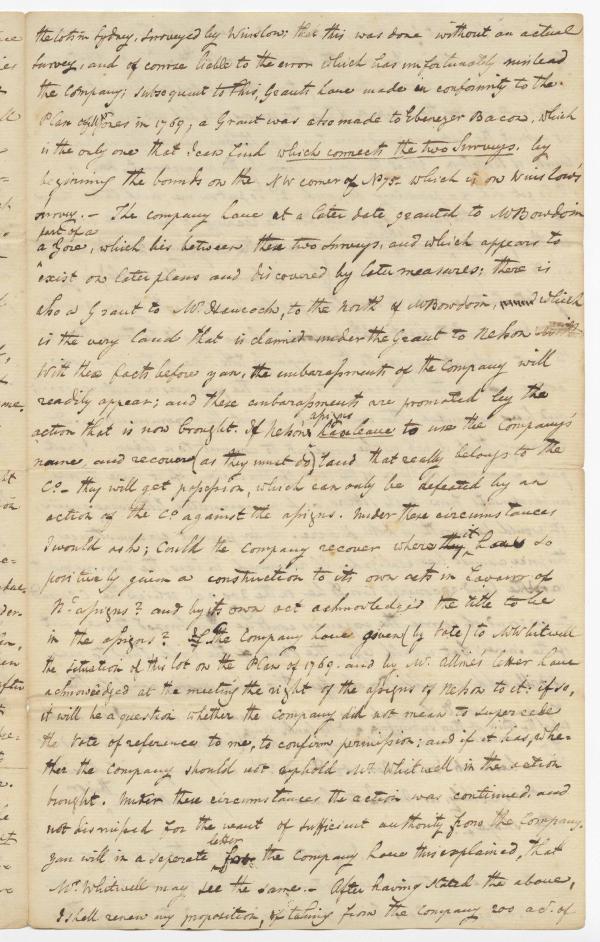 the lots in Sydney, Surveyed by Winslow; that this was done without an actual
survey, and of corrse liable to the error which has unfortunately mislead
the Company; subsequent to this, Grants have made in conformity to the
Plan of Jones in 1769, a Grant was also made to Ebenezer Bacon, which
is the only one that I can find which connects the two Surveys. by
beginning the bounds on the NW corner of No 75 - which is on Winslow's
survey. - The company have at a later date granted to Mr Bowdoin
part of a
a Gore, which lies between these two Surveys, and which appears to
exist on later plans and discovered by later measures: there is
also a Grant to Mr Hancock, to the North of Mr Bowdoin, and which
is the very land that is claimed under the Grant to Nelson
With these facts before you, the embarassments of the Company will
readily appear; and these embarassments are promoted by the
assigns
action that is now brought. If Nelson's have leave to use the Company's
name, and recover (as they must do) land that really belongs to the
Co - they will get possession, which can only be defeated by an
action of the Co against the assigns. Under these circumstances
it
I would ask; Could the Company recover where they have so
positively given a construction to its own acts in favor of
N's assigns? and by its own act acknowledged the title to be
in the assigns? If the Company have given (by Vote) to Mr Whitwell
the situation of this lot on the Plan of 1769. and by Mr. Alline's letter have
acknowledged at the meeting the right of the assigns of Nelson to it: if so,
it will be a question whether the Company did not mean to supercede
the Vote of reference to me, to confirm permission; and if it has, whe-
ther the Company should not uphold Mr Whitwell in the action
brought. Under these circumstances the action was continued. and
not dismissed for the want of sufficient authority from the Company.
letter
you will in a seperate the Company have this explained, that
Mr. Whitwell may see the same. - After having stated the above,
I shall renew my proposition, of taking from the Company 200 ac. of